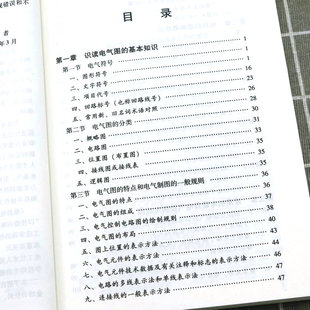 者
年3月
目 录
第一章 识读电气图的基本知识 1
第一节 电气符号 1
一、图形符号 1
二、文字符号 16
三、项目代号 23
四、回路标号(也称回路线号) 26
五、常用新、旧名词术语对照 28
第二节 电气图的分类 31
一、概略图 31
二、电路图 33
三、位置图(布置图) 33
四、接线图或接线表 35
五、逻辑图 35
第三节 电气图的特点和电气制图的一般规则 36
一、电气图的特点 36
二、电气图的组成 37
三、电气控制电路图的绘制规则 38
四、电气图的布局 40
五、图上位置的表示方法 41
六、电气元件的表示方法 42
七、电气元件技术数据及有关注释和标志的表示方法 44
八、电路的多线表示法和单线表示法 46
九、连接线的一般表示方法 47